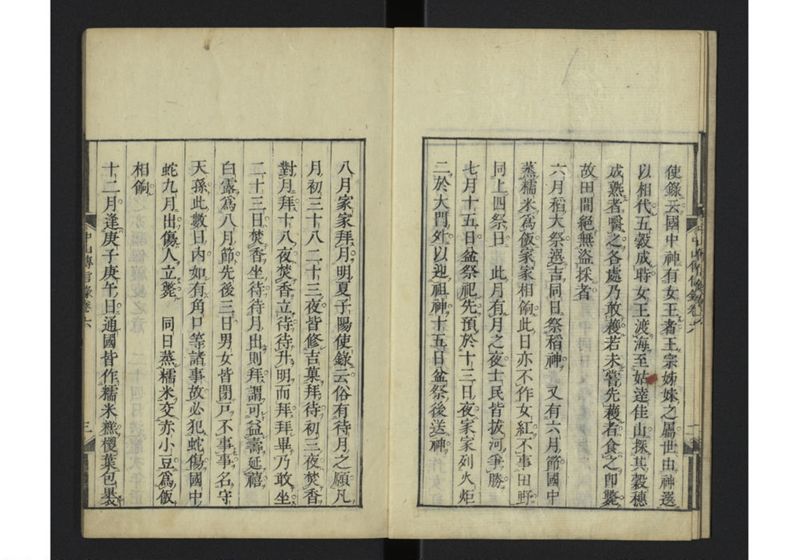 使錄云國中神有女王者王宗姊妹之屬世由神選
以相代五穀成時女王渡海至姑達佳山採其穀穗
成熟者嚼之各處乃敢穫若未嘗先穫者食之卽斃
故田間絕無盜採者
六月稻大祭選吉同日祭稻神　又有六月節國中
蒸糯米爲飯家家相餉此日亦不作女紅不事田野
同上四祭日　此月有月之夜士民皆拔河爭勝
七月十五日盆祭祀先預於十三日夜家家列火炬
二於大門外以迎祖神十五日盆祭後送神
八月家家拜月明夏子陽使錄云俗有待月之願凡
月初三十八二十三夜皆修吉菓拜待初三夜焚香
對月拜十八夜焚香立待待升明而拜拜畢乃敢坐
二十三日焚香坐待待月出則拜謂可益壽延禧
白露爲八月節先後三日男女皆閉戶不事事名守
天孫此數日內如有角口等諸事故必犯蛇傷國中
蛇九月出傷人立斃　同日蒸糯米交赤小豆爲飯
相餉
十二月逢庚子庚午日通國皆作糯米糕椶葉包裹
中山傳信錄卷六
三